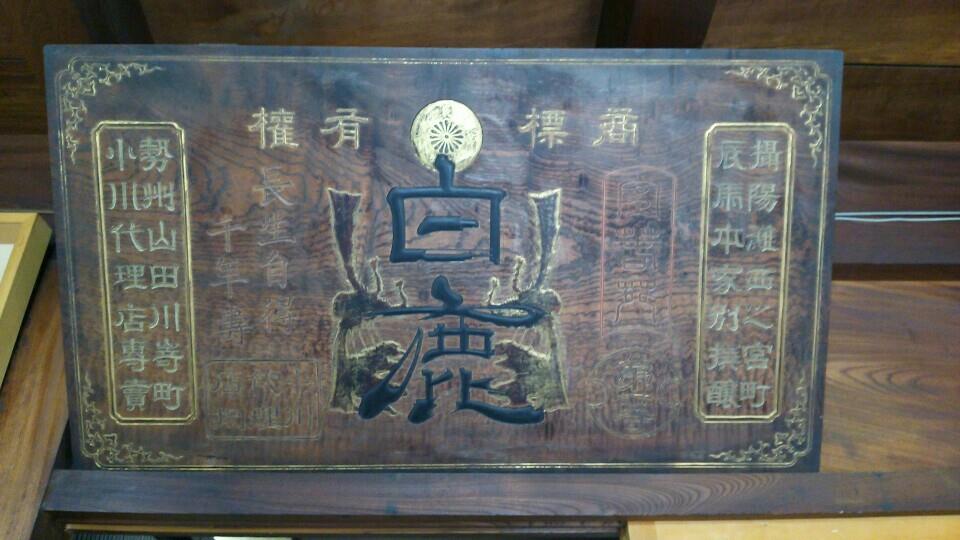 商標有權
攝陽灘西之宮町
辰馬本家別撰釀
白鹿
長生自得
千年壽
勢州山田川嵜町
小川代理店專賣